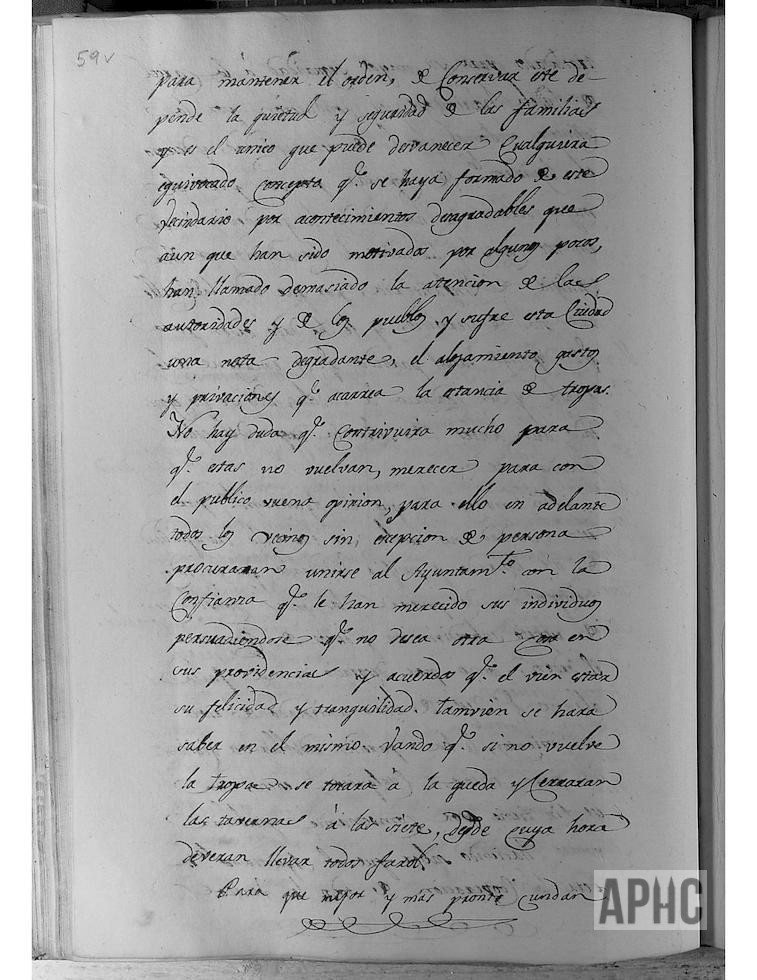 59v
para mantener el orden, de Conservar este de-
pende la quietud y seguridad de las familias
y es el unico que puede desvanecer Cualquiera
equivocado concepto q.e se haya formado de este
vecindario por acontecimientos desagradables que
aun que han sido motivados por algunos pocos,
han llamado demasiado la atencion de las
autoridades y de los pueblos y sufre esta Ciudad
una nota degradante, el alojamiento, gastos
y privaciones q.e acarrea la estancia de tropas.
No hay duda q.e Contrivuira mucho para
q.e estas no vuelvan, merecer para con
el publico buena opinion, para ello en adelante
todos los vecinos sin escepcion de persona
procuraran unirse al Ayuntam.to con la
Confianza q.e le han merecido sus individuos
persuadiendose q.e no desea otra Cosa en
sus providencias y acuerdos q.e el vien estar
su felicidad y tranquilidad. Tamvien se hara
saber en el mismo Vando q.e si no vuelve
la tropa se tocara á la queda y Cerraran
las tavernas á las siete, desde cuya hora
deveran llevar todos farol
Para que mejor y mas pronto cundan
APHC